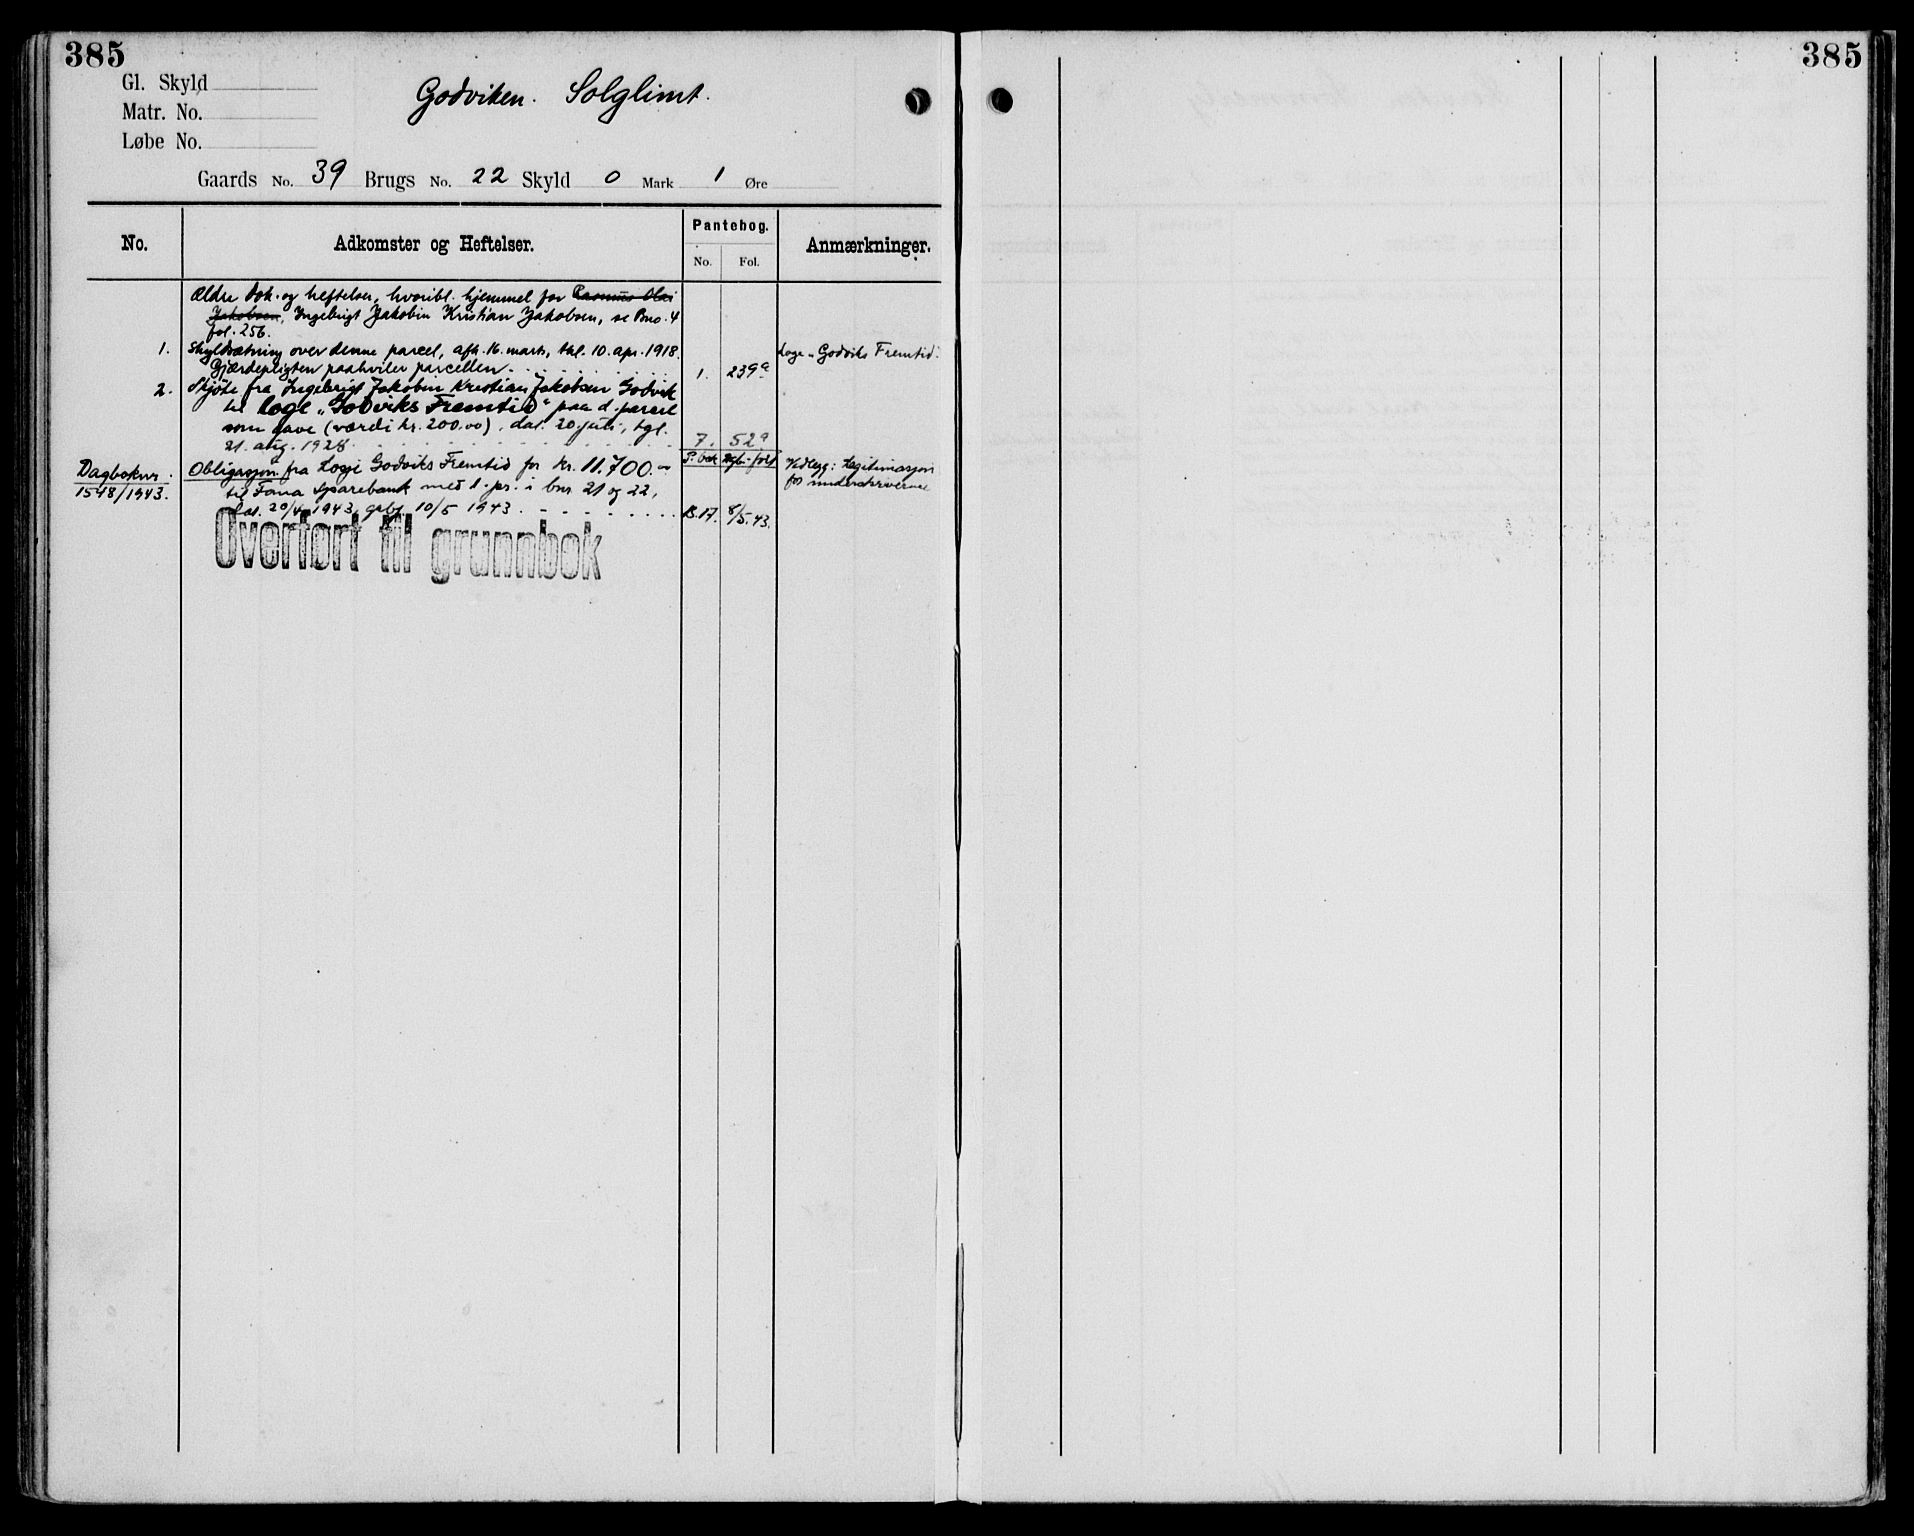 385
385
Gl. Skyld
Matr. No.
Løbe No.
Godviken. Solglimt.
Gaards No. 39 Brugs No. 22 Skyld 0 Mark 1 Øre
No.
Adkomster og Heftelser.
Pantebog.
No. Fol.
Anmærkninger.
Ældre dok. og heftelser, hvoribl. hjemmel for Rasmus Olai
Jakobsen, Ingebrigt Jakobin Kristian Jakobsen, se Bno. 4
fol. 256.
1. Skyldsætning over denne parcel, afh. 16. marts, thl. 10. apr. 1918. Loge „Godviks Fremtid".
Gjærdepligten paahviler parcellen. 1. 239a
2. Skjöte fra Ingebrigt Jakobin Kristian Jakobsen Godvik
til Loge „Godviks Fremtid" paa d. parcel
som gave (værdi kr. 200.00), dat. 20. juli, tgl.
21. aug. 1928. 7. 52a
Dagboknr. Obligasjon fra Losje Godviks Fremtid for kr. 11.700.- P.bok Tgl. Vedlegg: Legitimasjon
1548/1943. til Fana sparebank med 1. pr. i bnr 21 og 22, for underskriverne
dat. 20/4 1943, 10/5 1943. B.17. 8/5.43.
Overført til grunnbok